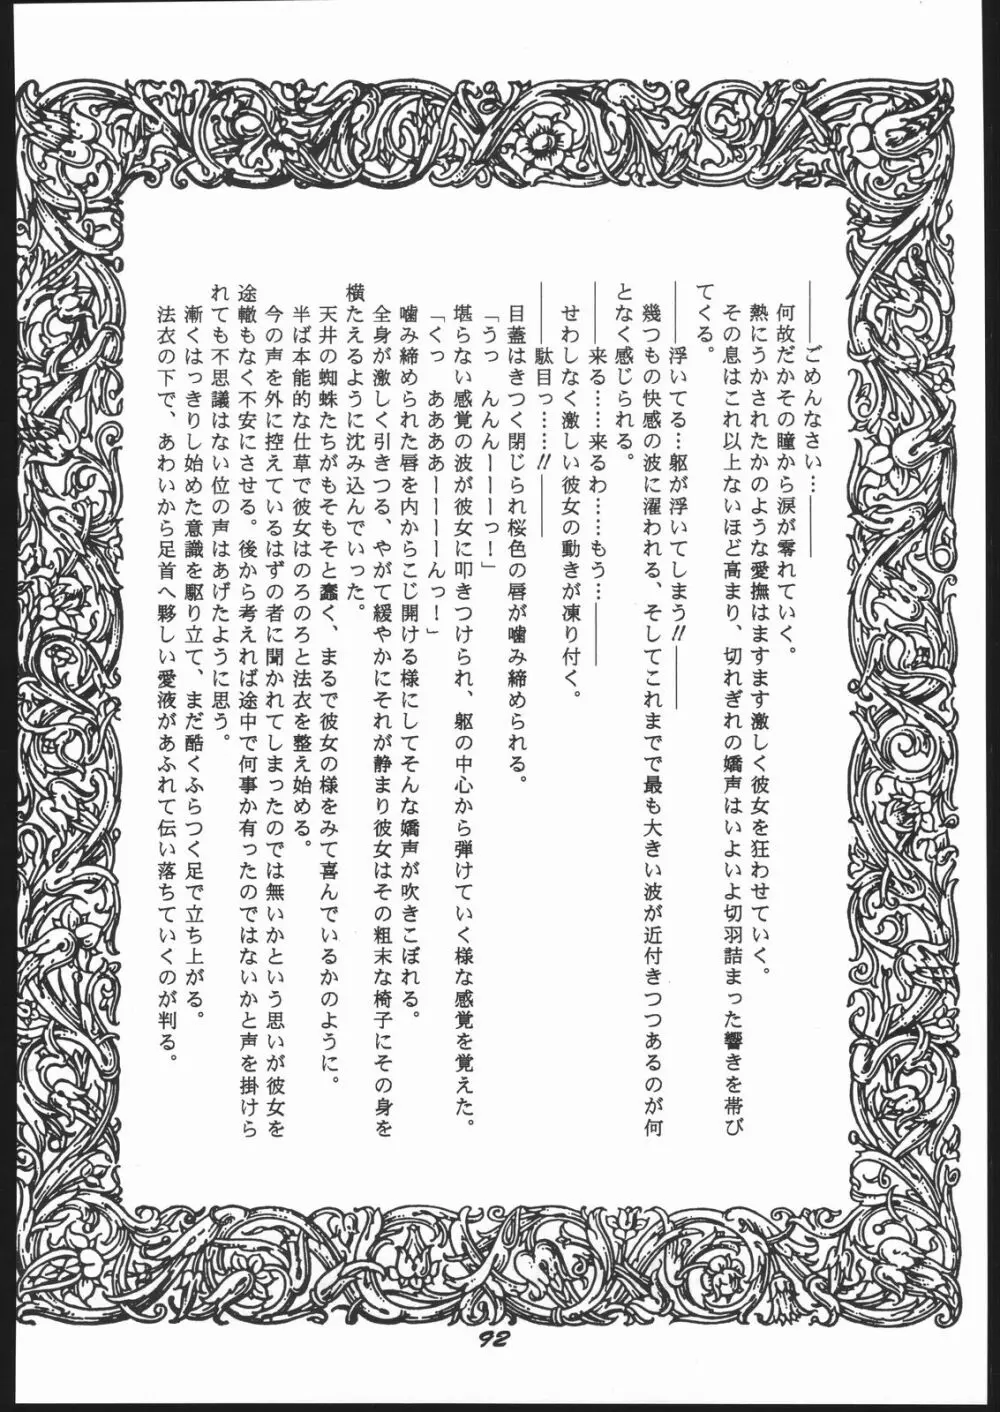 ――――ごめんなさい…――――
何故だかその瞳から涙が零れていく。
熱にうかされたかのような愛撫はますます激しく彼女を狂わせていく。
その息はこれ以上ないほど高まり、切れぎれの嬌声はいよいよ切羽詰まった響きを帯び
てくる。
――――浮いてる…躯が浮いてしまう!!――――
幾つもの快感の波に濯われる、そしてこれまでで最も大きい波が近付きつつあるのが何
となく感じられる。
――――来る……来るわ……もう…――――
せわしなく激しい彼女の動きが凍り付く。
――――駄目っ……!!――――
目蓋はきつく閉じられ桜色の唇が噛み締められる。
「うっ　んんんーーーーっ！」
堪らない感覚の波が彼女に叩きつけられ、躯の中心から弾けていく様な感覚を覚えた。
「くっ　ああああーーーーんっ！」
噛み締められた唇を内からこじ開ける様にしてそんな嬌声が吹きこぼれる。
全身が激しく引きつる、やがて緩やかにそれが静まり彼女はその粗末な椅子にその身を
横たえるように沈み込んでいった。
天井の蜘蛛たちがもそもそと蠢く、まるで彼女の様をみて喜んでいるかのように。
半ば本能的な仕草で彼女はのろのろと法衣を整え始める。
今の声を外に控えているはずの者に聞かれてしまったのでは無いかという思いが彼女を
途轍もなく不安にさせる。後から考えれば途中で何事か有ったのではないかと声を掛けら
れても不思議はない位の声はあげたように思う。
漸くはっきりし始めた意識を駆り立て、まだ酷くふらつく足で立ち上がる。
法衣の下で、あわいから足首へ夥しい愛液があふれて伝い落ちていくのが判る。
92